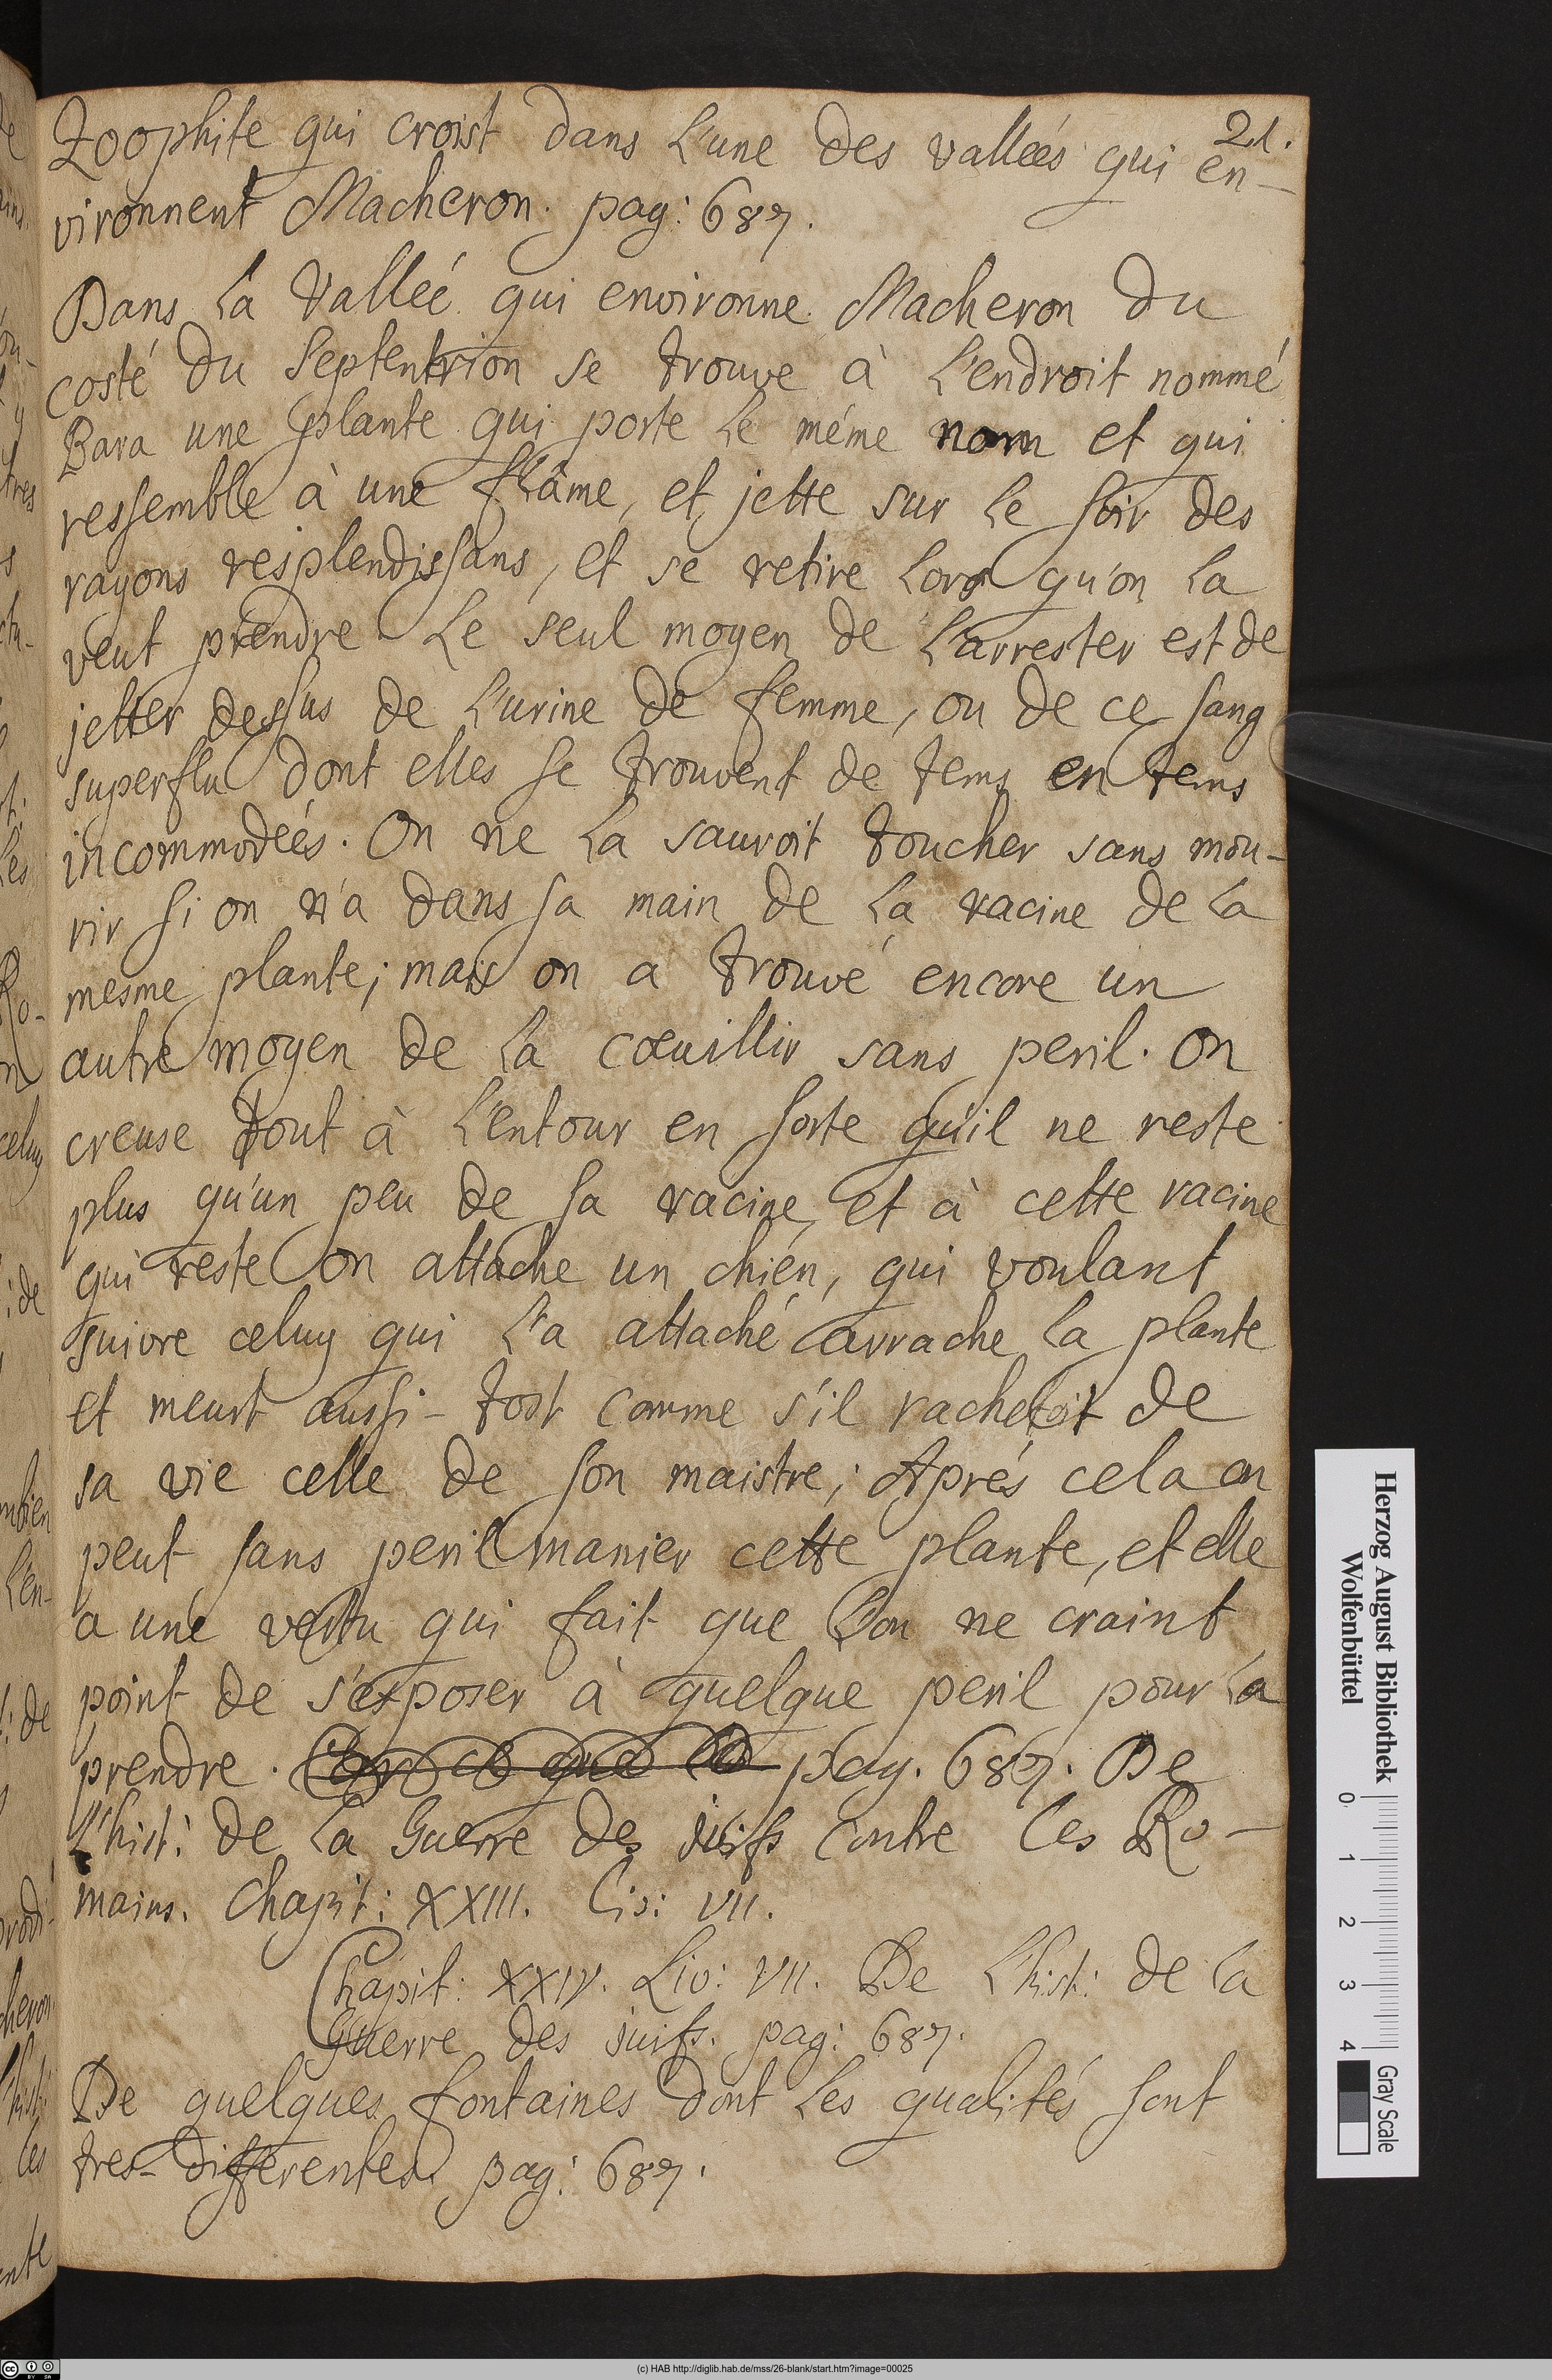 21.
Zoophite qui croist dans l'une des valleés qui en-
vironnent Macheron. pag: 687.
Dans la Valleé qui environne Macheron du
costé du Septentrion se trouve à l'endroit nommé
Bara une plante qui porte le méme nom et qui
ressemble à une flâme, et jette sur le soir des
rayons resplendissans, et se retire lors qu'on la
veut prendre. Le seul moyen de l'arrester est de
jetter dessus de l'urine de femme, ou de ce sang
superflu dont elles se trouvent de tems en tems
incommodeés. On ne la sauroit toucher sans mou-
rir si on n'a dans sa main de la racine de la
mesme plante; mais on a trouvé encore un
autre moyen de la cœuillir sans peril. On
creuse tout à l'entour en sorte qu'il ne reste
plus qu'un peu de sa racine, et à cette racine
qui reste on attache un chien, qui voulant
suivre celuy qui l'a attaché arrache la plante
et meurt aussi-tost comme s'il rachetoit de
sa vie celle de son maistre; Aprés cela on
peut sans peril manier cette plante, et elle
a une vertu qui fait que l'on ne craint
point de s'exposer à quelque peril pour la
prendre. pag. 687. De
L'hist: de la Guerre des juifs contre les Ro-
mains. Chapit: XXIII. Liv: VII.
Chapit: XXIV. Liv: VII. De L'hist: de la
Guerre des juifs. pag: 687.
De quelques fontaines dont les qualités sont
tres-differentes. pag: 687.
Herzog August Bibliothek
Wolfenbüttel
0 1 2 3 4
Gray Scale
(c) HAB http://diglib.hab.de/mss/26-blank/start.htm?image=00025